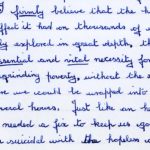 firmly believe that the h
ffect it had on thousands of
ly explored in great depth, th
ssential and vital necessity for
grinding poverty, without the s
we would be wapped into
veral hours. Just like an h
needed a fix to keep us go
suicidal with the hopeless u